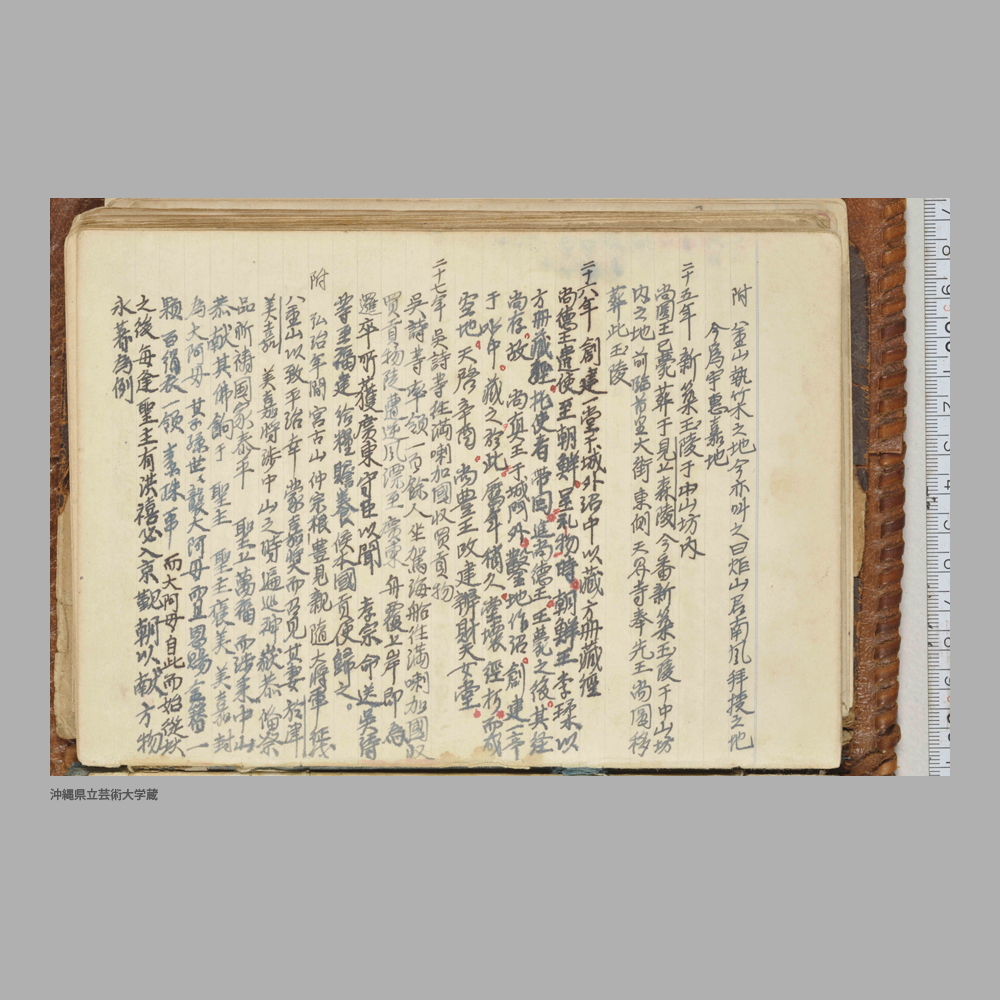 附 金山執策之地今亦叫之曰炸山君南風拜授之地
今為宇恵嘉地
二十五年 新築王陵于中山坊内
尚圓王已薨葬于見上森陵今番新築王陵于中山坊
内之地前臨首里大街東側天界寺奉先王尚圓移
葬此王陵
二十六年創建一堂于城外沼中以藏方冊藏經
尚徳王遣使至朝鮮呈礼物時朝鮮王李瑈以
方冊藏經托使者帶回進尚徳王王薨之後其経
尚存故 尚真王于城門外鑿地作沼創建一亭
于沼中 藏之於此歴年稍久堂壊經朽而成
空地 天啓辛酉 尚豊王改建辨財天女堂
二十七年 吳詩等往満喇加國收買貢物
吳詩等率領一百餘人坐駕海船往満喇加國收
買貢物陡遭逆風漂至廣東舟覆上岸即為
邏卒所獲廣東守臣以聞 孝宗命送吳詩
等至福建給糧贍養候本國貢使歸之
附 弘治年間宮古山仲宗根豊見親随大将軍征伐
八重山以致平治幸蒙嘉奨而召見其妻於津
美嘉 美嘉将渉中山之時遍巡神嶽恭備祭
品祈禱国家泰平 聖上萬福而渉来中山
恭献其佛餉于 聖主 聖主褒美美嘉封
為大阿母 其子孫世々毅大阿母而且恩賜金簪一
顆 白絹衣一領 素珠一串 而大阿母自此而始従此
之後毎逢聖主有洪禧必入京覲朝以献方物
永著為例
沖縄県立芸術大学蔵